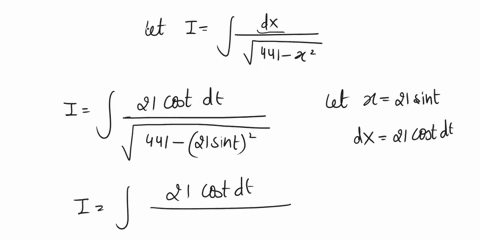 Let I = ∫ dx / √(441 - x²)
I = ∫ 21 cost dt / √(441 - (21sint)²)
Let x = 21sint
dx = 21 cost dt
I = ∫ 21 cost dt